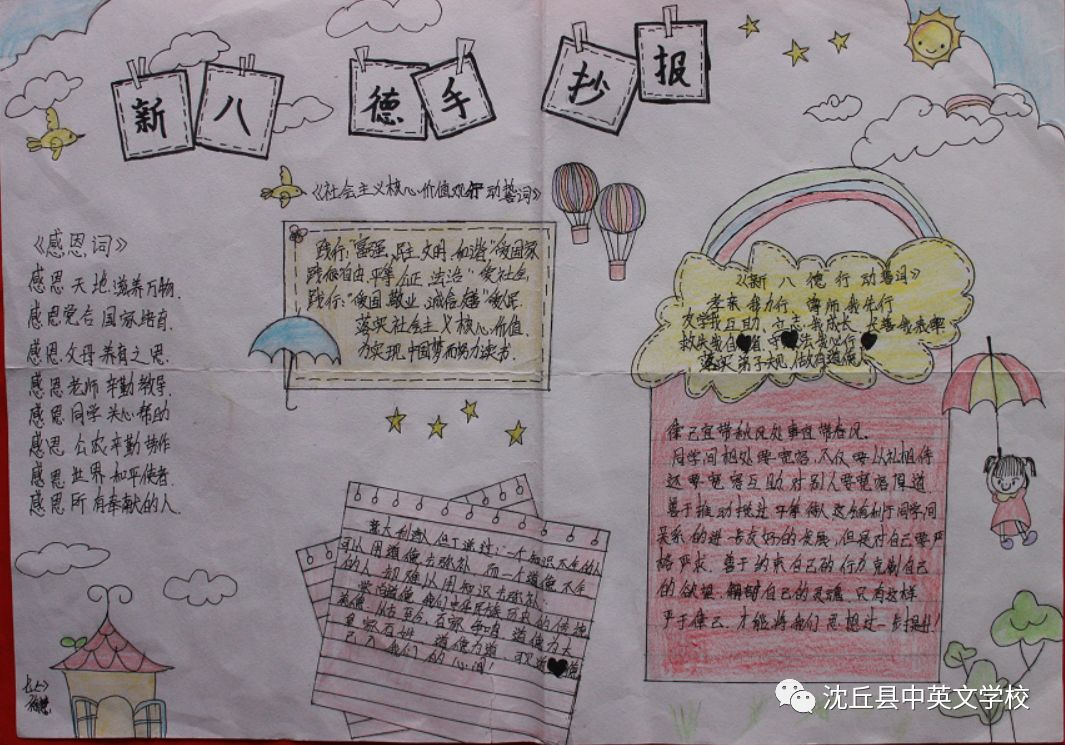 新八德手抄报
《社会主义核心价值观行动誓词》
践行："富强、民主、文明、和谐"爱国家
践行自由、平等、公正、法治"爱社会
践行："爱国、敬业、诚信、友善"爱人民
落实社会主义核心价值、
为实现中国梦而努力读书.
《感恩词》
感恩天地滋养万物.
感恩党合国家培育.
感恩父母养育之恩.
感恩老师辛勤教导.
感恩同学关心帮助
感恩公农辛勤协作
感恩世界和平使者.
感恩所有奉献的人.
《新八德行动誓词》
孝亲我力行 尊师我先行
友学我互助、立志我成长
落实弟子规、做有道德
律己宜带秋风处事宜带春风.
同学间相处要宽容，不仅要以礼相待
还要宽容互助对别人要宽容厚道.
善于推动
平等待人这会有利于同学间
关系的进一步友好的发展，但是对自己要严
格要求.善于约束自己的行为克制自己
的欲望.
自己的灵魂.只有这样
严于律己.才能将我们思想过一步提升!
意大利诗人但丁说过：一个知识不全的人
可以用道德去弥补 而一个道德不全
的人却难以用知识去弥补.
我们中华民族历史的传统
美德.从古至今，
道德为大
道德为道
我们的心间!
七七
沈丘县中英文学校